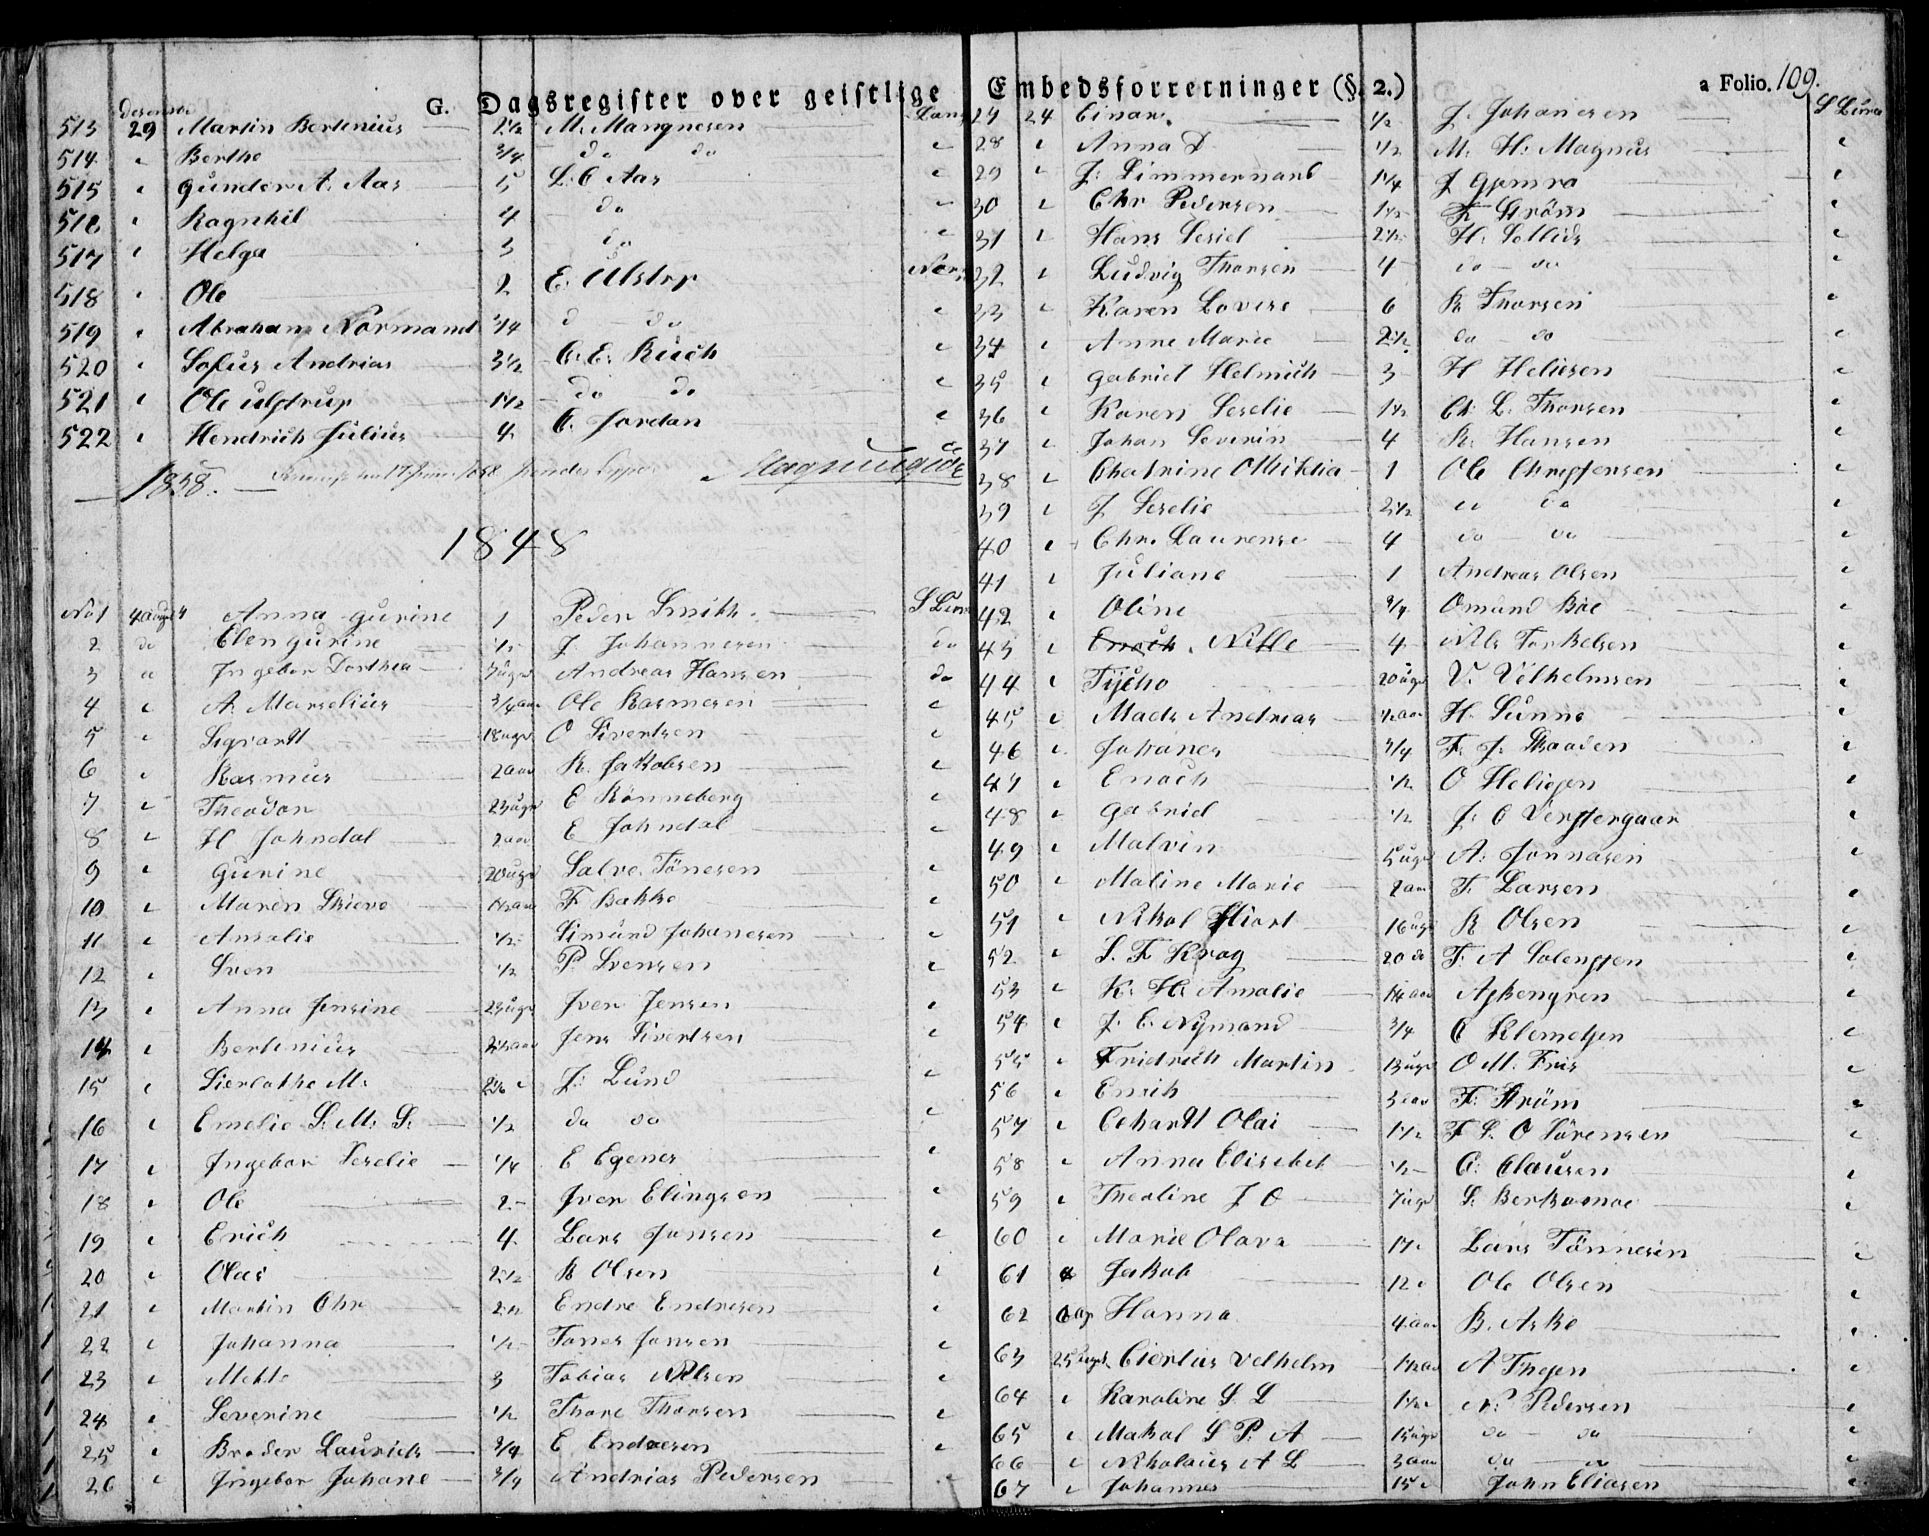 G. Dagsregister over geistlige
513 29 Martin Bertinius 2 1/2 M. Mangnesen
514 " Berthe 3/4 do do "
515 " Gunder A. Aas 5 L. C Aas "
516 " Ragnhil 4 do "
517 " Helga 3 do "
518 " Ole 2 E. Ulstrp
519 " Abraham Normand 1/4 d do "
520 " Sofus Andrias 3 1/2 C. E. Ruch "
521 " Ole Ulstrup 1 1/2 do do "
522 " Hendrich Julius 4 C. Jordan "
1858.
1848
No 1 Anna Gurine 1 Peder Smith
2 do Elen Gurine 1/2 J. Johannesen do
3 " Ingebor Dorthea 7 uger Andreas Hansen do
4 " A. Marselius 3/4 aar Ole Rasmesen "
5 " Sigvardt 18 uger O Sivertsen "
6 " Rasmus 2 aar R. Jakobsen "
7 " Theodor 23 uger E Rönneberg "
8 " H Johndal 2 aar E Johndal "
9 " Gurine 20 uger Salve Tönesen "
10 " Maren 1 1/2 aar F Bakke "
11 " Amalie 1/2 Simund Johanesen "
12 " Sven 1/2 P. Svensen "
13 " Anna Jensine 23 uger Iver Jensen "
14 " Bertinius 2 1/2 aar Jens Sivertsen "
15 " M. J. Lund "
16 " Emelie S. M. S. 1/2 do do "
17 " Ingebor Seselie 1/4 E Egenes "
18 " Ole 2 Iver Elingsen "
19 " Erich 4 Lars Jonsen "
20 " Olai 2 1/2 R Olsen "
21 " Martin Chr Endre Endresen "
22 " Johanna 1/2 Tones Jonsen "
23 " Mehle 3 Tobias Nilsen "
24 " Severine 1/2 Thore Thorsen "
25 " Broder Laurids 3/4 E Endresen "
26 " Ingebor Johane 3/4 Andrias Pedersen "
Embedsforretninger (§. 2.) a Folio. 109.
24 Einar 1/2 J. Johanesen
28 " Anna D. 1/2 M. H. Magnus "
29 " J. Simmernanb 1 1/4 J "
30 " Chr Pedersen 1 1/2 F. Ström "
31 " Hans Seriel 2 1/2 H. "
32 " Ludvig Thorsen 4 do do "
33 " Karen Lovise 6 R Thorsen "
34 " Anne Marie 2 1/2 do do "
35 " Gabriel Helmich 3 H Heliesen "
36 " Karen Seselie 1 1/2 Ch. L. Thorsen "
37 " Johan Severin 4 R. Hansen "
38 " Chatrine 1 Ole Christensen "
39 " J Seselie 2 1/2 do do "
40 " Chr. Laurense 4 do do "
41 " Juliane 1 Andreas Olsen "
42 " Oline 3/4 Omund Böe "
43 " Enoch. Niffe 4 Nils Torkelsen "
44 " Tÿcho 20 uger V. Vilhelmsen "
45 " Mads Andreas 1/2 aar H. Sunne "
46 " Johanes 3/4 F. J. Skaaden "
47 " Enoch 1/2 O Heliesen "
48 " Gabriel 1/2 J. C Verstergaar
49 " Malvin 5 uger A. Jonnasen "
50 " Maline Marie 2 aar T. Larsen "
51 " Nikol Hiort 16 uger R Olsen "
52 " S. F Krog 20 do T. A "
53 " K. H. Amalie 1 1/4 aar Askengren "
54 " J. C. Nymand 3/4 C Klemetsen "
55 " Fridrich Martin 13 uger O M. Friis "
56 " Enrik 3 aar F. Ström "
57 " Eehardt Olai 1 1/2 F S. O Sörensen "
58 " Anna Elisebet 1/2 C. Clausen "
59 " Theoline J O 7 uger S. "
60 " Marie Olava 17 " Lars Tönnesen "
61 " Jakob 12 " Ole Olsen "
62 Hanna 4 aar B. Aske "
63 25 Velhelm 1 1/2 aar A Thesen "
64 " Karoline S. L 1 1/2 " N. Pedersen "
65 " Makal S P. A 15 uger do do "
66 " Nikolaus A L 3 aar do do "
67 " Johannes 15 " John Eliasen "